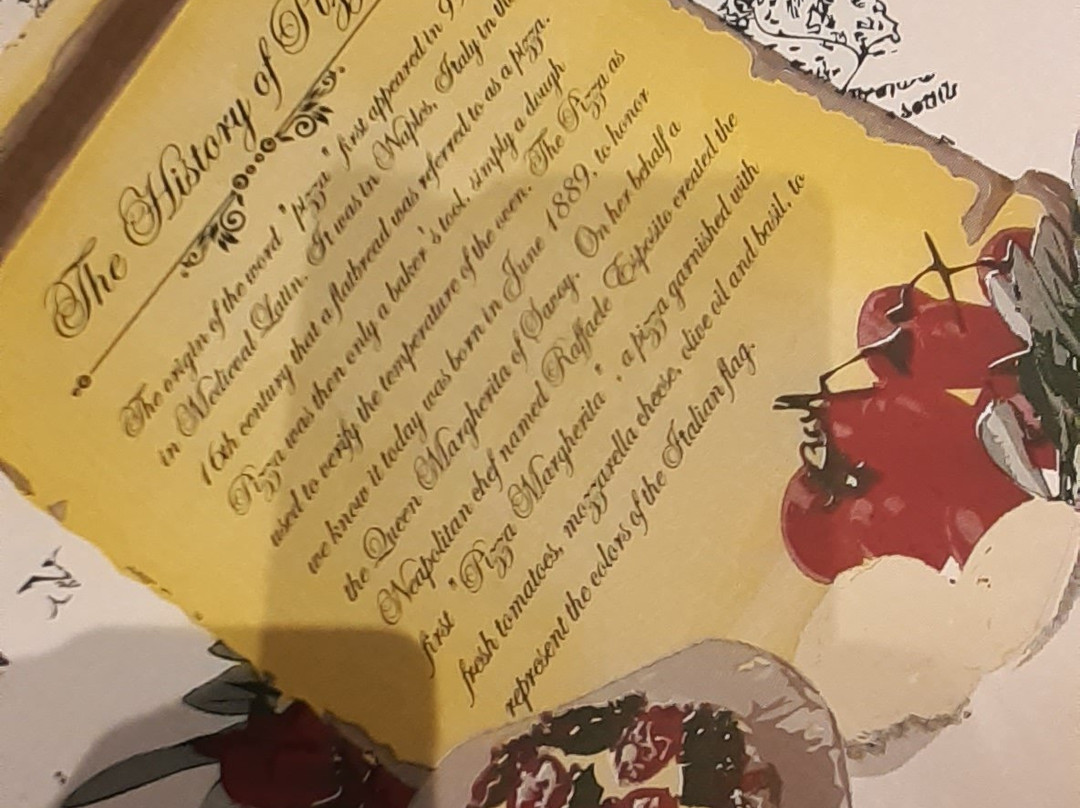 The History of Pizz
The origin of the word "pizza" first appeared in 9
in Medieval Latin. It was in Naples, Italy in th
16th century that a flatbread was referred to as a pizza.
Pizza was then only a baker's tool, simply a dough
used to verify the temperature of the oven. The Pizza as
we know it today was born in June 1889, to honor
the Queen Margherita of Savoy. On her behalf a
Neapolitan chef named Raffaele Esposito created the
first "Pizza Margherita", a pizza garnished with
fresh tomatoes, mozzarella cheese, olive oil and basil, to
represent the colors of the Italian flag.